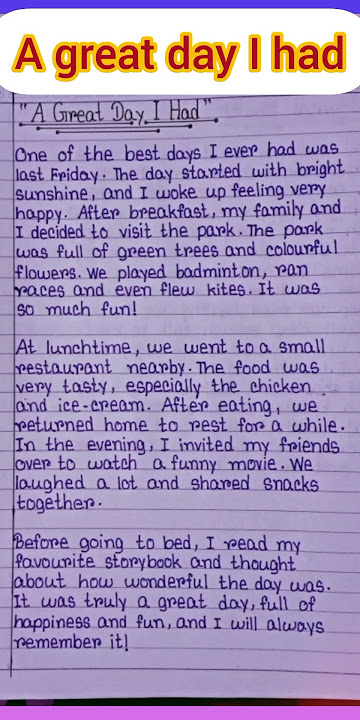 A great day I had
"A Great Day I Had"
One of the best days I ever had was
last Friday. The day started with bright
sunshine, and I woke up feeling very
happy. After breakfast, my family and
I decided to visit the park. The park
was full of green trees and colourful
flowers. We played badminton, ran
races and even flew kites. It was
so much fun!
At lunchtime, we went to a small
restaurant nearby. The food was
very tasty, especially the chicken
and ice-cream. After eating, we
returned home to rest for a while.
In the evening, I invited my friends
over to watch a funny movie. We
laughed a lot and shared snacks
together.
Before going to bed, I read my
favourite storybook and thought
about how wonderful the day was.
It was truly a great day, full of
happiness and fun, and I will always
remember it!